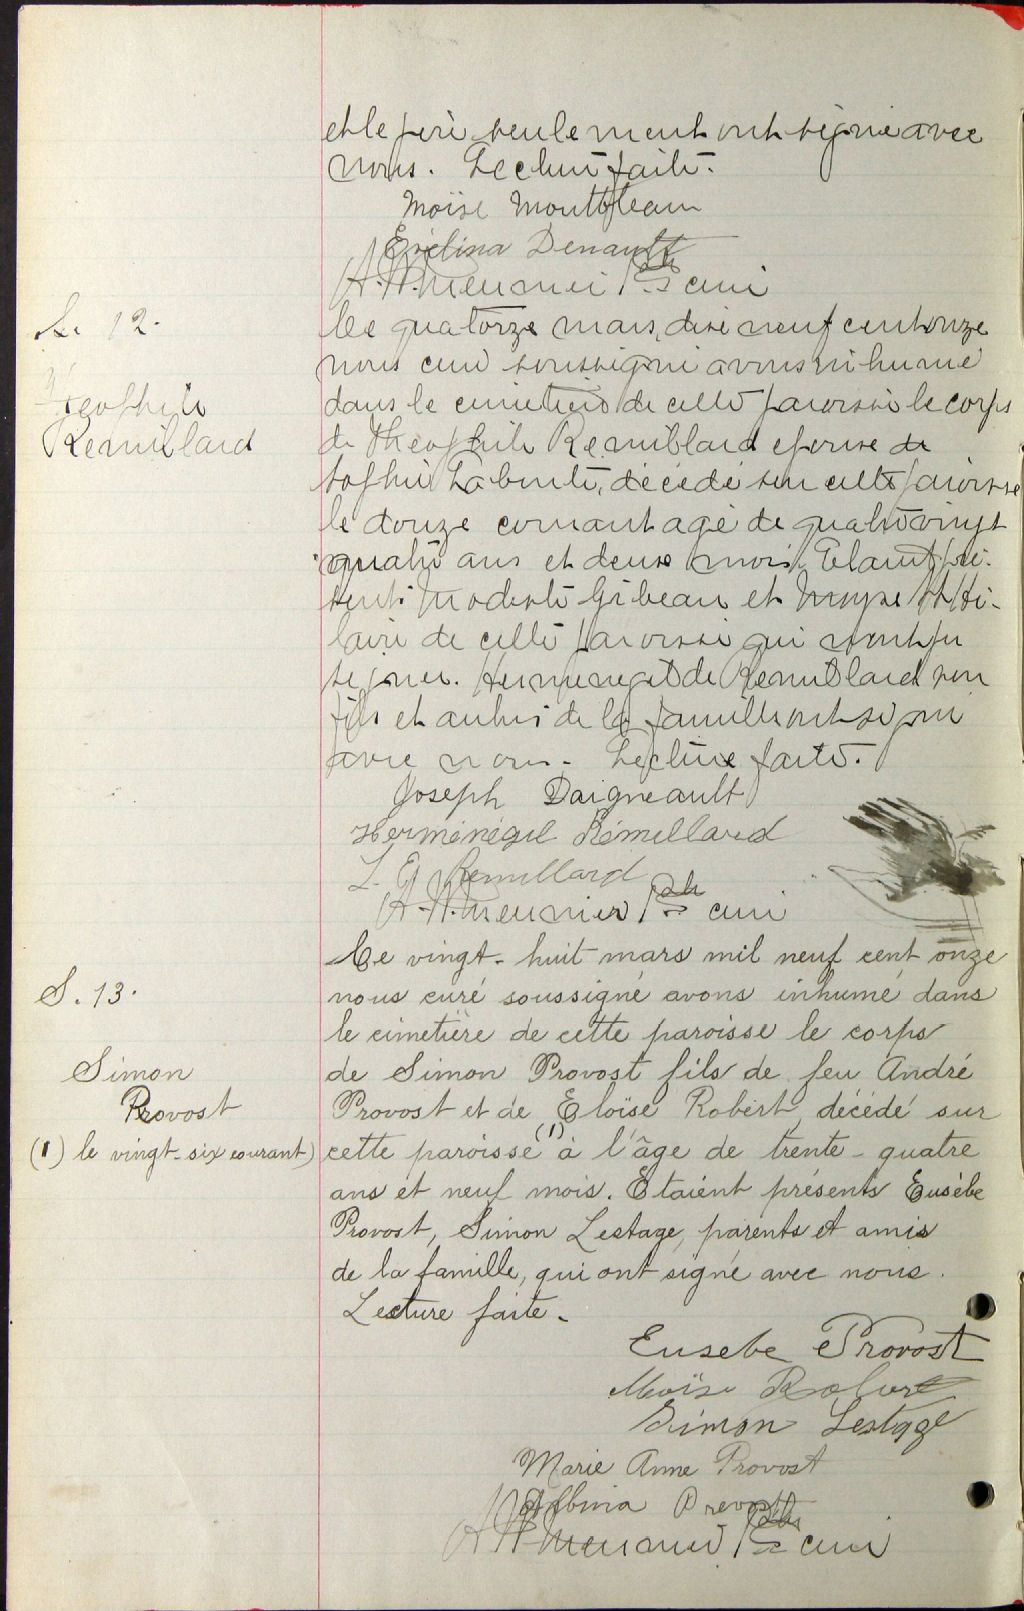 et le père seulement ont signé avec
nous. Lecture faite.
Moïse Montbleau
Evélina Denault
A. H. Meunier Ptre curé
S. 12.
Théophile
Remillard
Ce quatorze mars, dixe neuf cent onze
nous curé soussigné avons inhumé
dans le cimetière de cette paroisse le corps
de Théophile Remillard epoux de
Sophie Laberte, décédé sur cette paroisse
le douze courant agé de quatre vingt
quatre ans et deux mois. Etaient pré-
sents Modeste Gibeau et Moyse St Hi-
laire de cette paroisse qui n'ont pu
signer. Hermenegilde Remillard son
fils et autres de la famille ont signé
avec nous. Lecture faite.
Joseph Daigneault
Herménégil Rémillard
L. Remillard
A. H. Meunier Ptre curé
S. 13.
Simon
Provost
(1) le vingt-six courant)
Ce vingt-huit mars mil neuf cent onze
nous curé soussigné avons inhumé dans
le cimetière de cette paroisse le corps
de Simon Provost fils de feu André
Provost et de Eloïse Robert, décédé sur
cette paroisse (1) à l'âge de trente-quatre
ans et neuf mois. Etaient présents Eusèbe
Provost, Simon Lestage, parents et amis
de la famille, qui ont signé avec nous.
Lecture faite.
Eusebe Provost
Moïse Robert
Simon Lestage
Marie Anne Provost
Albina Prevost
A H Meunier Ptre curé